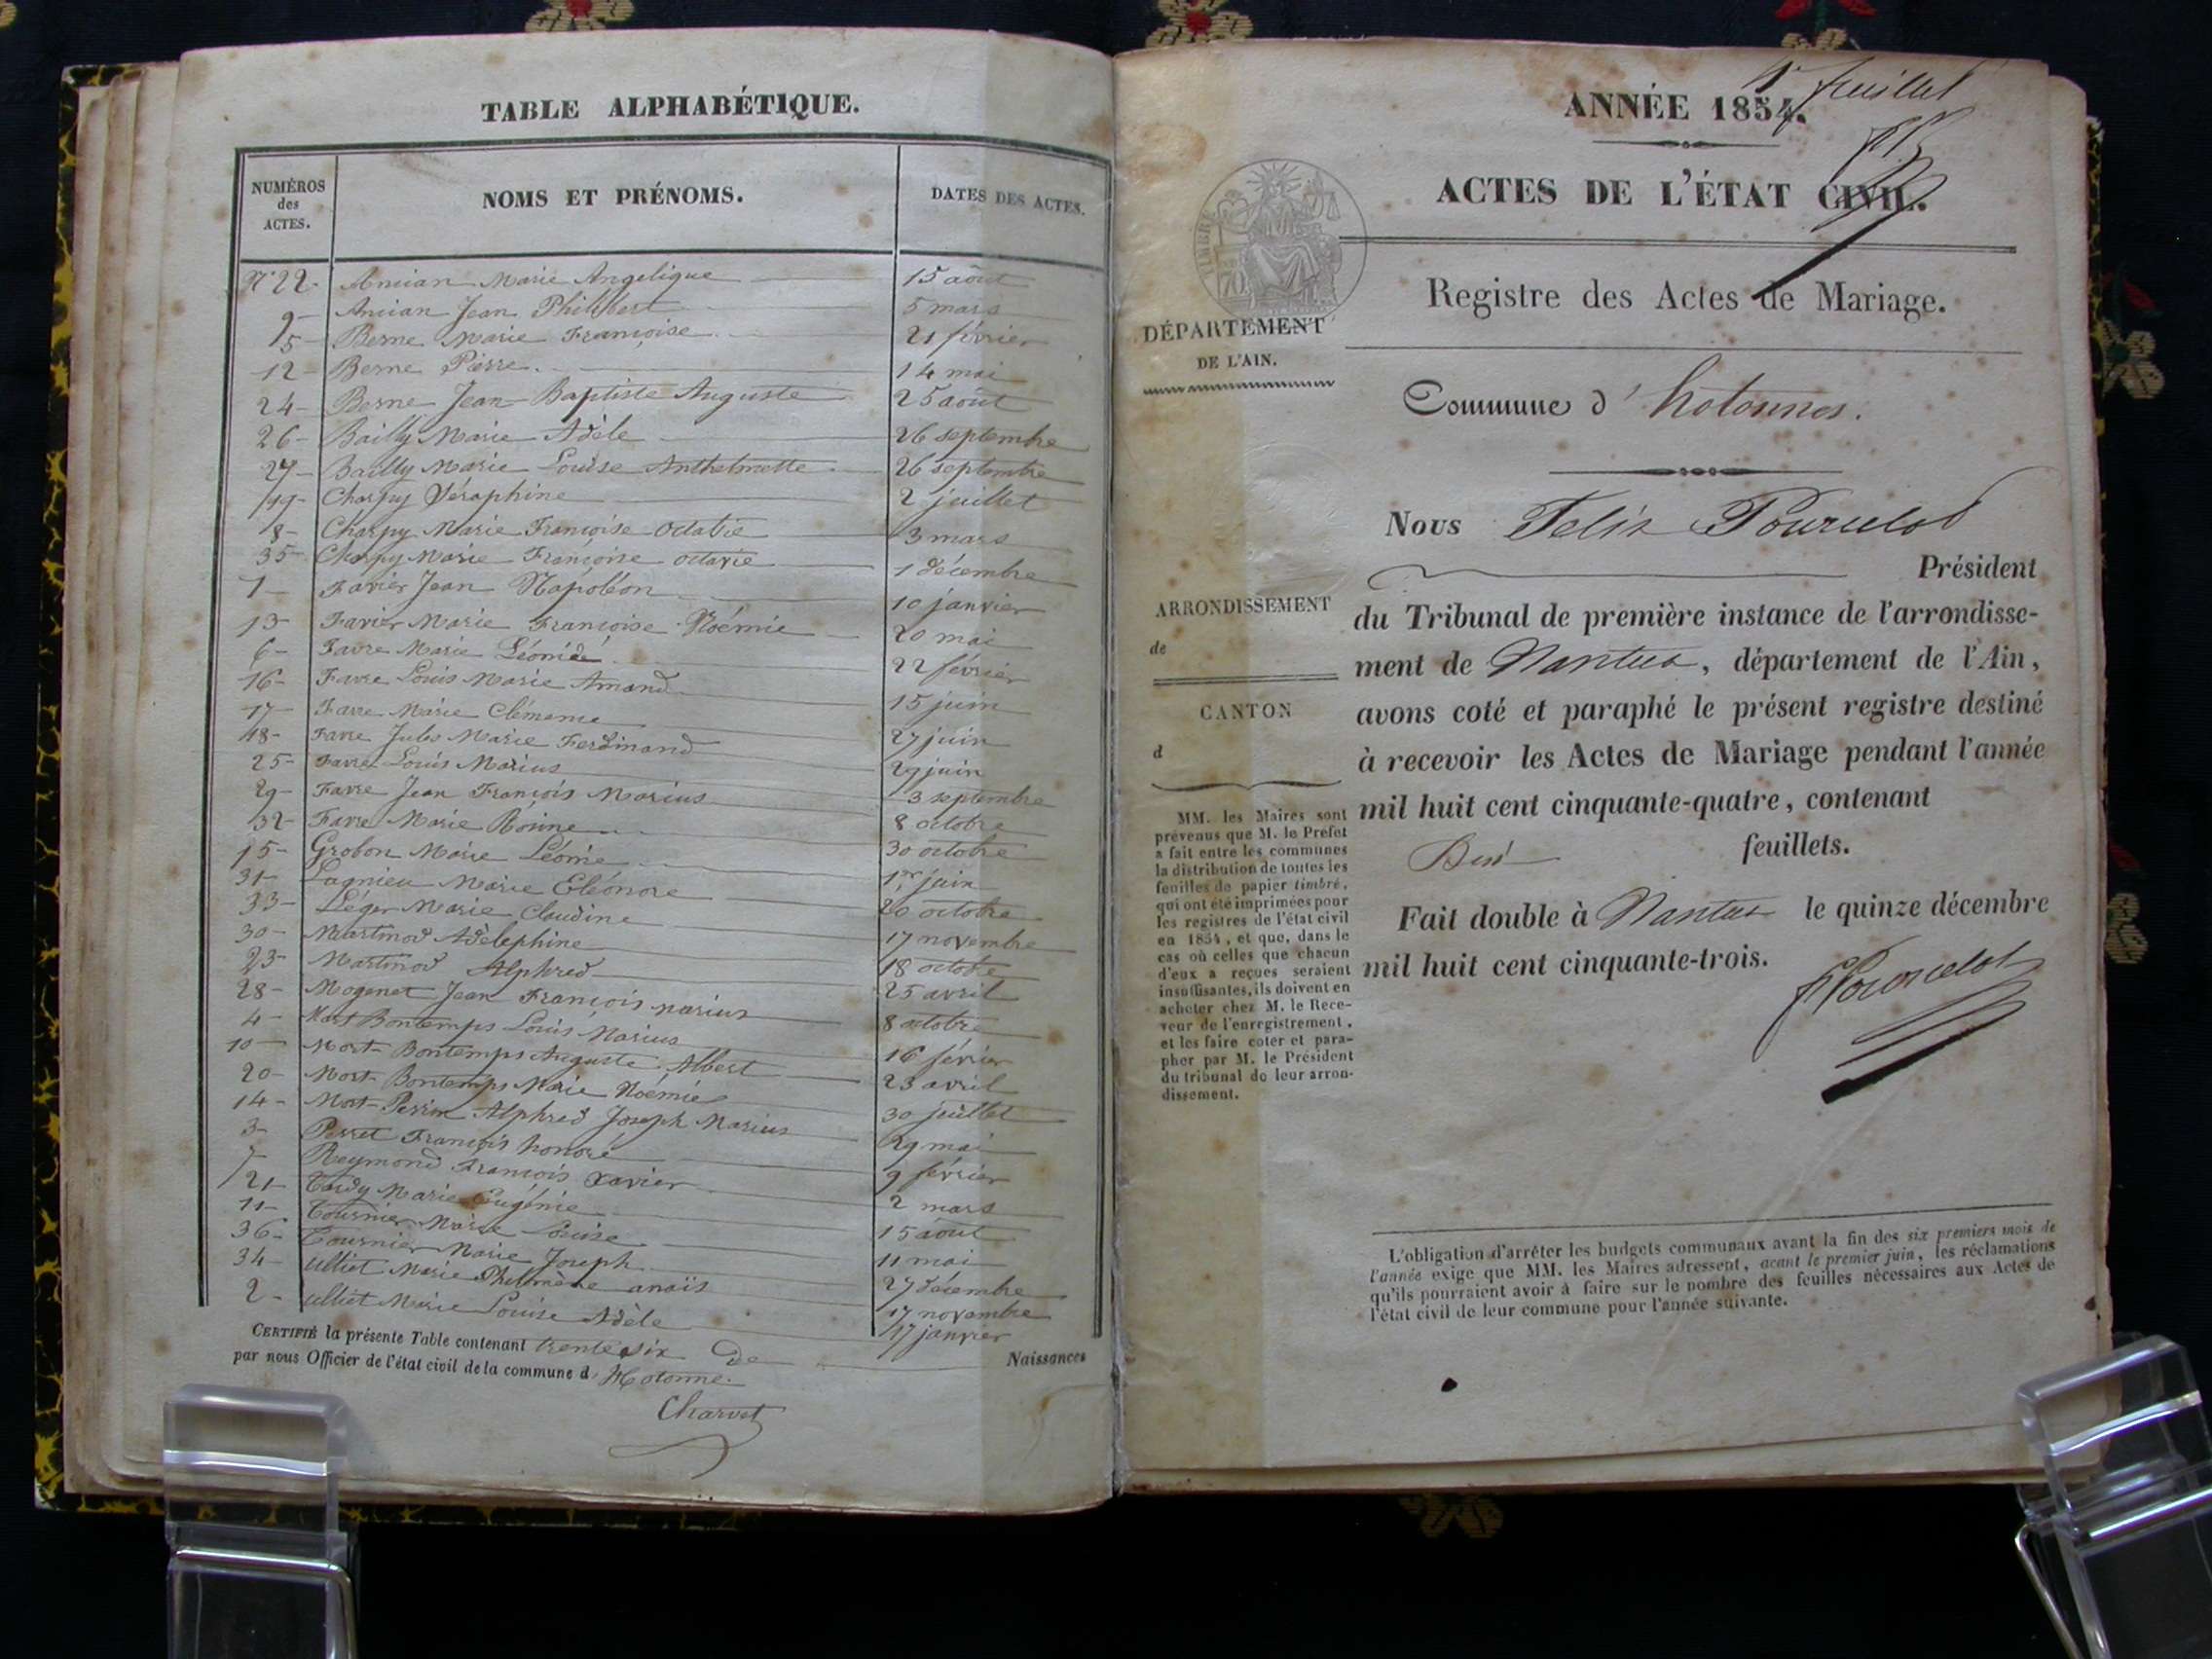 TABLE ALPHABÉTIQUE.
NUMÉROS des ACTES. NOMS ET PRÉNOMS. DATES DES ACTES.
N° 22 - Ancian Marie Angelique 15 août
9 - Ancian Jean Philibert 5 mars
5 - Berne Marie Françoise 21 février
12 - Berne Pierre. 14 mai
24 - Berne Jean-Baptiste Auguste 25 août
26 - Bailly Marie Adèle 26 septembre
27 - Bailly Marie Louise Anthelmette 26 septembre
19 - Charpy Séraphine 2 juillet
8 - Charpy Marie Françoise Octavie 3 mars
35 - Charpy Marie Françoise octavie 1 décembre
1 - Favier Jean Napoléon 10 janvier
13 - Favier Marie Françoise Noémie 20 mai
6 - Favre Marie Léonide 22 février
16 - Favre Louis Marie Amand 15 juin
17 - Favre Marie Clémence 27 juin
18 - Favre Jules Marie Ferdinand 29 juin
25 - Favre Louis Marius 3 septembre
29 - Favre Jean François Marius 8 octobre
32 - Favre Marie 30 octobre
15 - Grobon Marie Léonie 1er juin
31 - Lagnieu Marie Eléonore 20 octobre
33 - Léger Marie Claudine 17 novembre
30 - Martinod Adelephine 18 octobre
23 - Martinod Alphred 25 avril
28 - Mogenet Jean François marius 8 octobre
4 - Mort-Bontemps Louis Marius 16 février
10 - Mort-Bontemps Auguste Albert 23 avril
20 - Mort-Bontemps Marie Noémie 30 juillet
14 - Mort-Perrin Alphred Joseph Marius 29 mai
3 - Perret François honoré 9 février
7 - Reymond François Xavier 2 mars
21 - Tardy Marie Eugénie 15 août
11 - Tournier Marie Louise 11 mai
36 - Tournier Marie Joseph 27 décembre
34 - ulliet Marie Philomène anaïs 17 novembre
2 - ulliet Marie Louise Adèle 17 janvier
CERTIFIÉ la présente Table contenant trente six de Naissances
par nous Officier de l'état civil de la commune d' Hotonne.
Charvet
1r feuillet
ANNÉE 1854.
ACTES DE L'ÉTAT CIVIL.
TIMBRE
70
Registre des Actes de Mariage.
DÉPARTEMENT
DE L'AIN.
Commune d' hotonnes.
Nous Felix Pourcelot
Président
ARRONDISSEMENT
de
CANTON
d
du Tribunal de première instance de l'arrondisse-
ment de Nantua, département de l'Ain,
avons coté et paraphé le présent registre destiné
à recevoir les Actes de Mariage pendant l'année
mil huit cent cinquante-quatre, contenant
feuillets.
Fait double à Nantua le quinze décembre
mil huit cent cinquante-trois.
FPourcelot
MM. les Maires sont
prévenus que M. le Préfet
a fait entre les communes
la distribution de toutes les
feuilles de papier timbré,
qui ont été imprimées pour
les registres de l'état civil
en 1854, et que, dans le
cas où celles que chacun
d'eux a reçues seraient
insuffisantes, ils doivent en
acheter chez M. le Rece-
veur de l'enregistrement,
et les faire coter et para-
pher par M. le Président
du tribunal de leur arron-
dissement.
L'obligation d'arrêter les budgets communaux avant la fin des six premiers mois de
l'année exige que MM. les Maires adressent, avant le premier juin, les réclamations
qu'ils pourraient avoir à faire sur le nombre des feuilles nécessaires aux Actes de
l'état civil de leur commune pour l'année suivante.